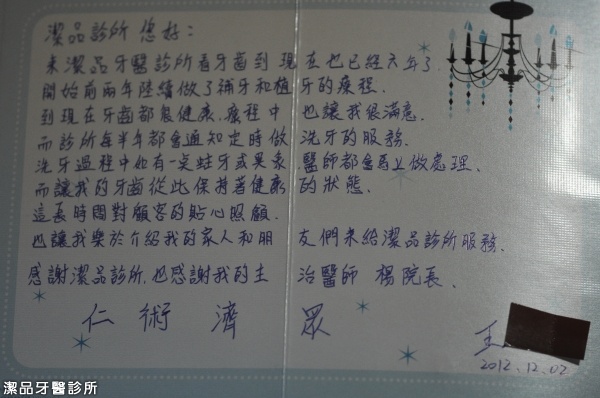 潔品診所 您好：
來潔品牙醫診所看牙齒到現在也已經六年了
開始前兩年陸續做了補牙和植牙的療程.
到現在牙齒都很健康.療程中 也讓我很滿意.
而診所每半年都會通知定時做 洗牙的服務.
洗牙過程中如有一點蛀牙或異象 醫師都會馬上做處理.
而讓我的牙齒從此保持著健康 的狀態.
這長時間對顧客的貼心照顧.
也讓我樂於介紹我的家人和朋 友們來給潔品診所服務.
感謝潔品診所.也感謝我的主 治醫師 楊院長.
仁術濟眾
王
2012.12.02
潔品牙醫診所